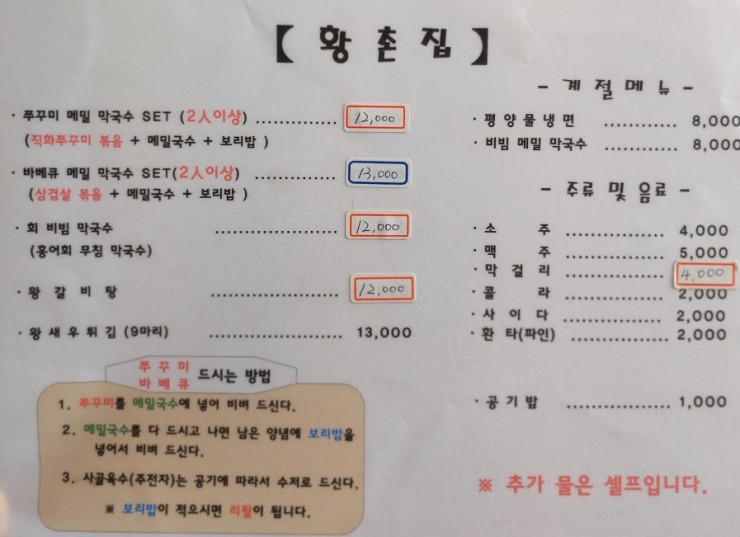 【 황 촌 집 】
· 쭈꾸미 메밀 막국수 SET (2人이상) .............. 12,000
(직화쭈꾸미 볶음 + 메밀국수 + 보리밥 )
· 바베큐 메밀 막국수 SET(2人이상) .............. 13,000
(삼겹살 볶음 + 메밀국수 + 보리밥 )
· 회 비빔 막국수 ..................... 12,000
(홍어회 무침 막국수)
· 왕 갈 비 탕 ..................... 12,000
· 왕 새 우 튀 김 (9마리) ..................... 13,000
쭈 꾸 미
바 베 큐 드시는 방법
1. 쭈꾸미를 메밀국수에 넣어 비벼 드신다.
2. 메밀국수를 다 드시고 나면 남은 양념에 보리밥을
넣어서 비벼 드신다.
3. 사골육수(주전자)는 공기에 따라서 수저로 드신다.
※ 보리밥이 적으시면 리필이 됩니다.
- 계 절 메 뉴 -
· 평 양 물 냉 면 ............ 8,000
· 비빔 메밀 막국수 ............ 8,000
- 주류 및 음료 -
· 소 주 ................ 4,000
· 맥 주 ................ 5,000
· 막 걸 리 ................ 4,000
· 콜 라 ................ 2,000
· 사 이 다 ................ 2,000
· 환 타(파인) ................ 2,000
· 공 기 밥 ................ 1,000
※ 추가 물은 셀프입니다.